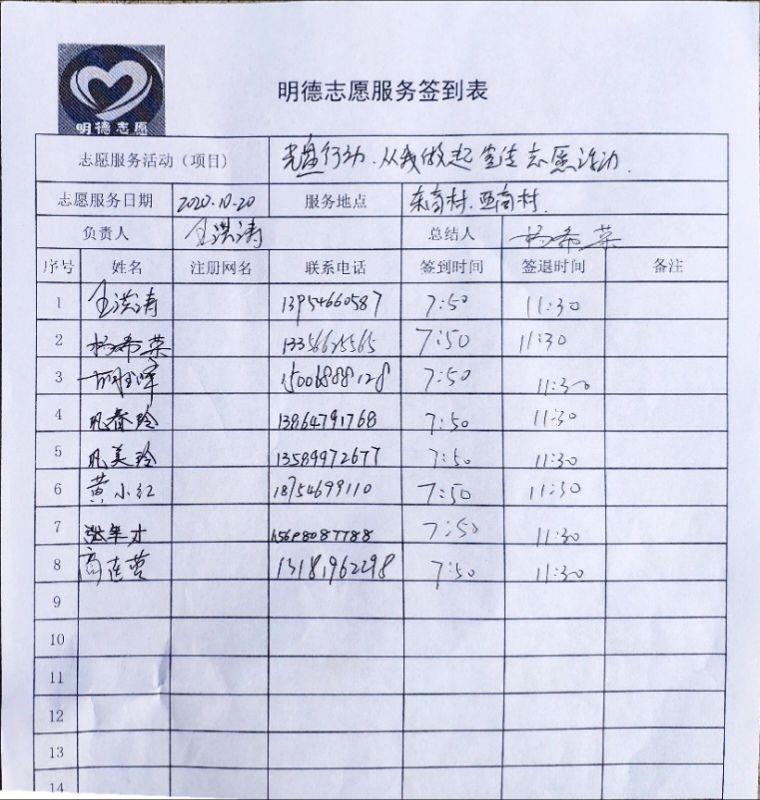 明德志愿
明德志愿服务签到表
志愿服务活动（项目） 光盘行动.从我做起 宣传志愿活动.
志愿服务日期 2020.10.20 服务地点 东商村.西商村.
负责人 王洪涛 总结人 杨希荣
序号 姓名 注册网名 联系电话 签到时间 签退时间 备注
1 王洪涛 13954660587 7:50 11:30
2 杨希荣 13356625565 7:50 11:30
3 15006888128 7:50 11:30
4 巩春玲 13864791768 7:50 11:30
5 巩美玲 13589972677 7:50 11:30
6 黄小红 18754699110 7:50 11:30
7 7:50 11:30
8 商连营 13181962298 7:50 11:30
9
10
11
12
13
14